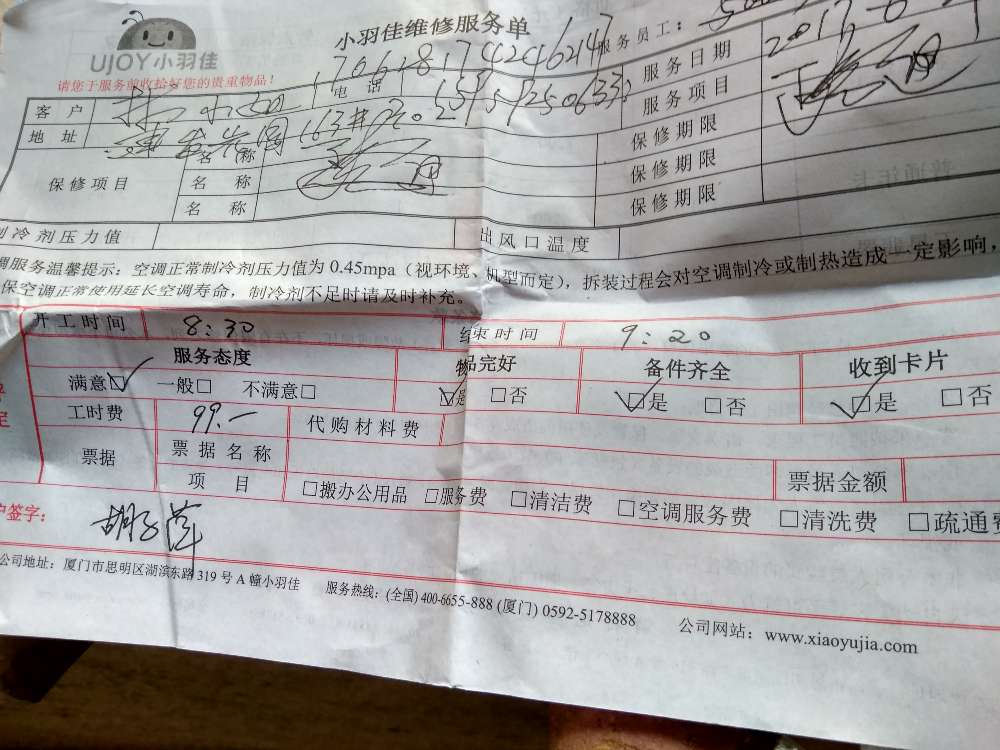 UJOY小羽佳
小羽佳维修服务单
服务员工：
请您于服务前收拾好您的贵重物品！
1706181742462147
服务日期 2017.6.
客户
电话 15959250633
服务项目
地址
163#
保修期限
保修项目
名称
保修期限
名称
保修期限
名称
制冷剂压力值
出风口温度
调服务温馨提示：空调正常制冷剂压力值为 0.45mpa（视环境、机型而定），拆装过程会对空调制冷或制热造成一定影响，
保空调正常使用延长空调寿命，制冷剂不足时请及时补充。
开工时间 8:30 结束时间 9:20
服务态度 物品完好 备件齐全 收到卡片
满意☑ 一般□ 不满意□ ☑是 □否 ☑是 □否 ☑是 □否
工时费 99.- 代购材料费
票据 票据名称 票据金额
项目 □搬办公用品 □服务费 □清洁费 □空调服务费 □清洗费 □疏通费
户签字：
公司地址：厦门市思明区湖滨东路 319 号 A 幢小羽佳 服务热线：(全国) 400-6655-888 (厦门) 0592-5178888 公司网站：www.xiaoyujia.com